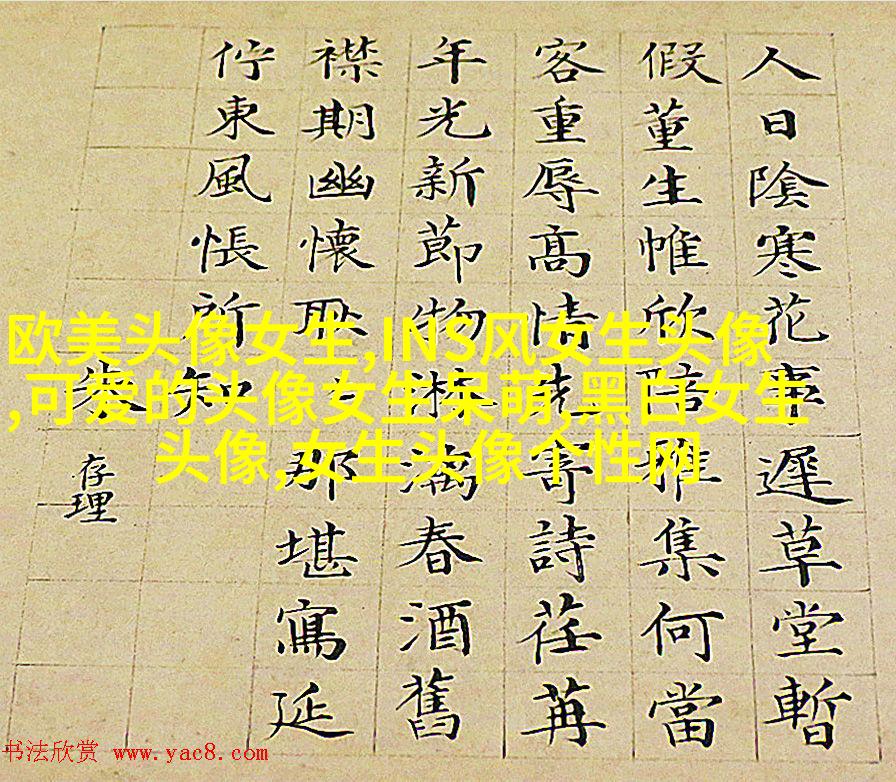 人日陰寒花事遲草堂暫
假董生帷欣陪雅集何當
客重辱高情寄詩荏苒
年光新節物淋漓春酒舊
襟期幽懷耿那堪寫延
佇東風悵所知
朱
存理
欧美头像女生,INS风女生头像
,可爱的头像女生呆萌,黑白女生
头像,女生头像个性网
书法欣赏 www.yac8.com